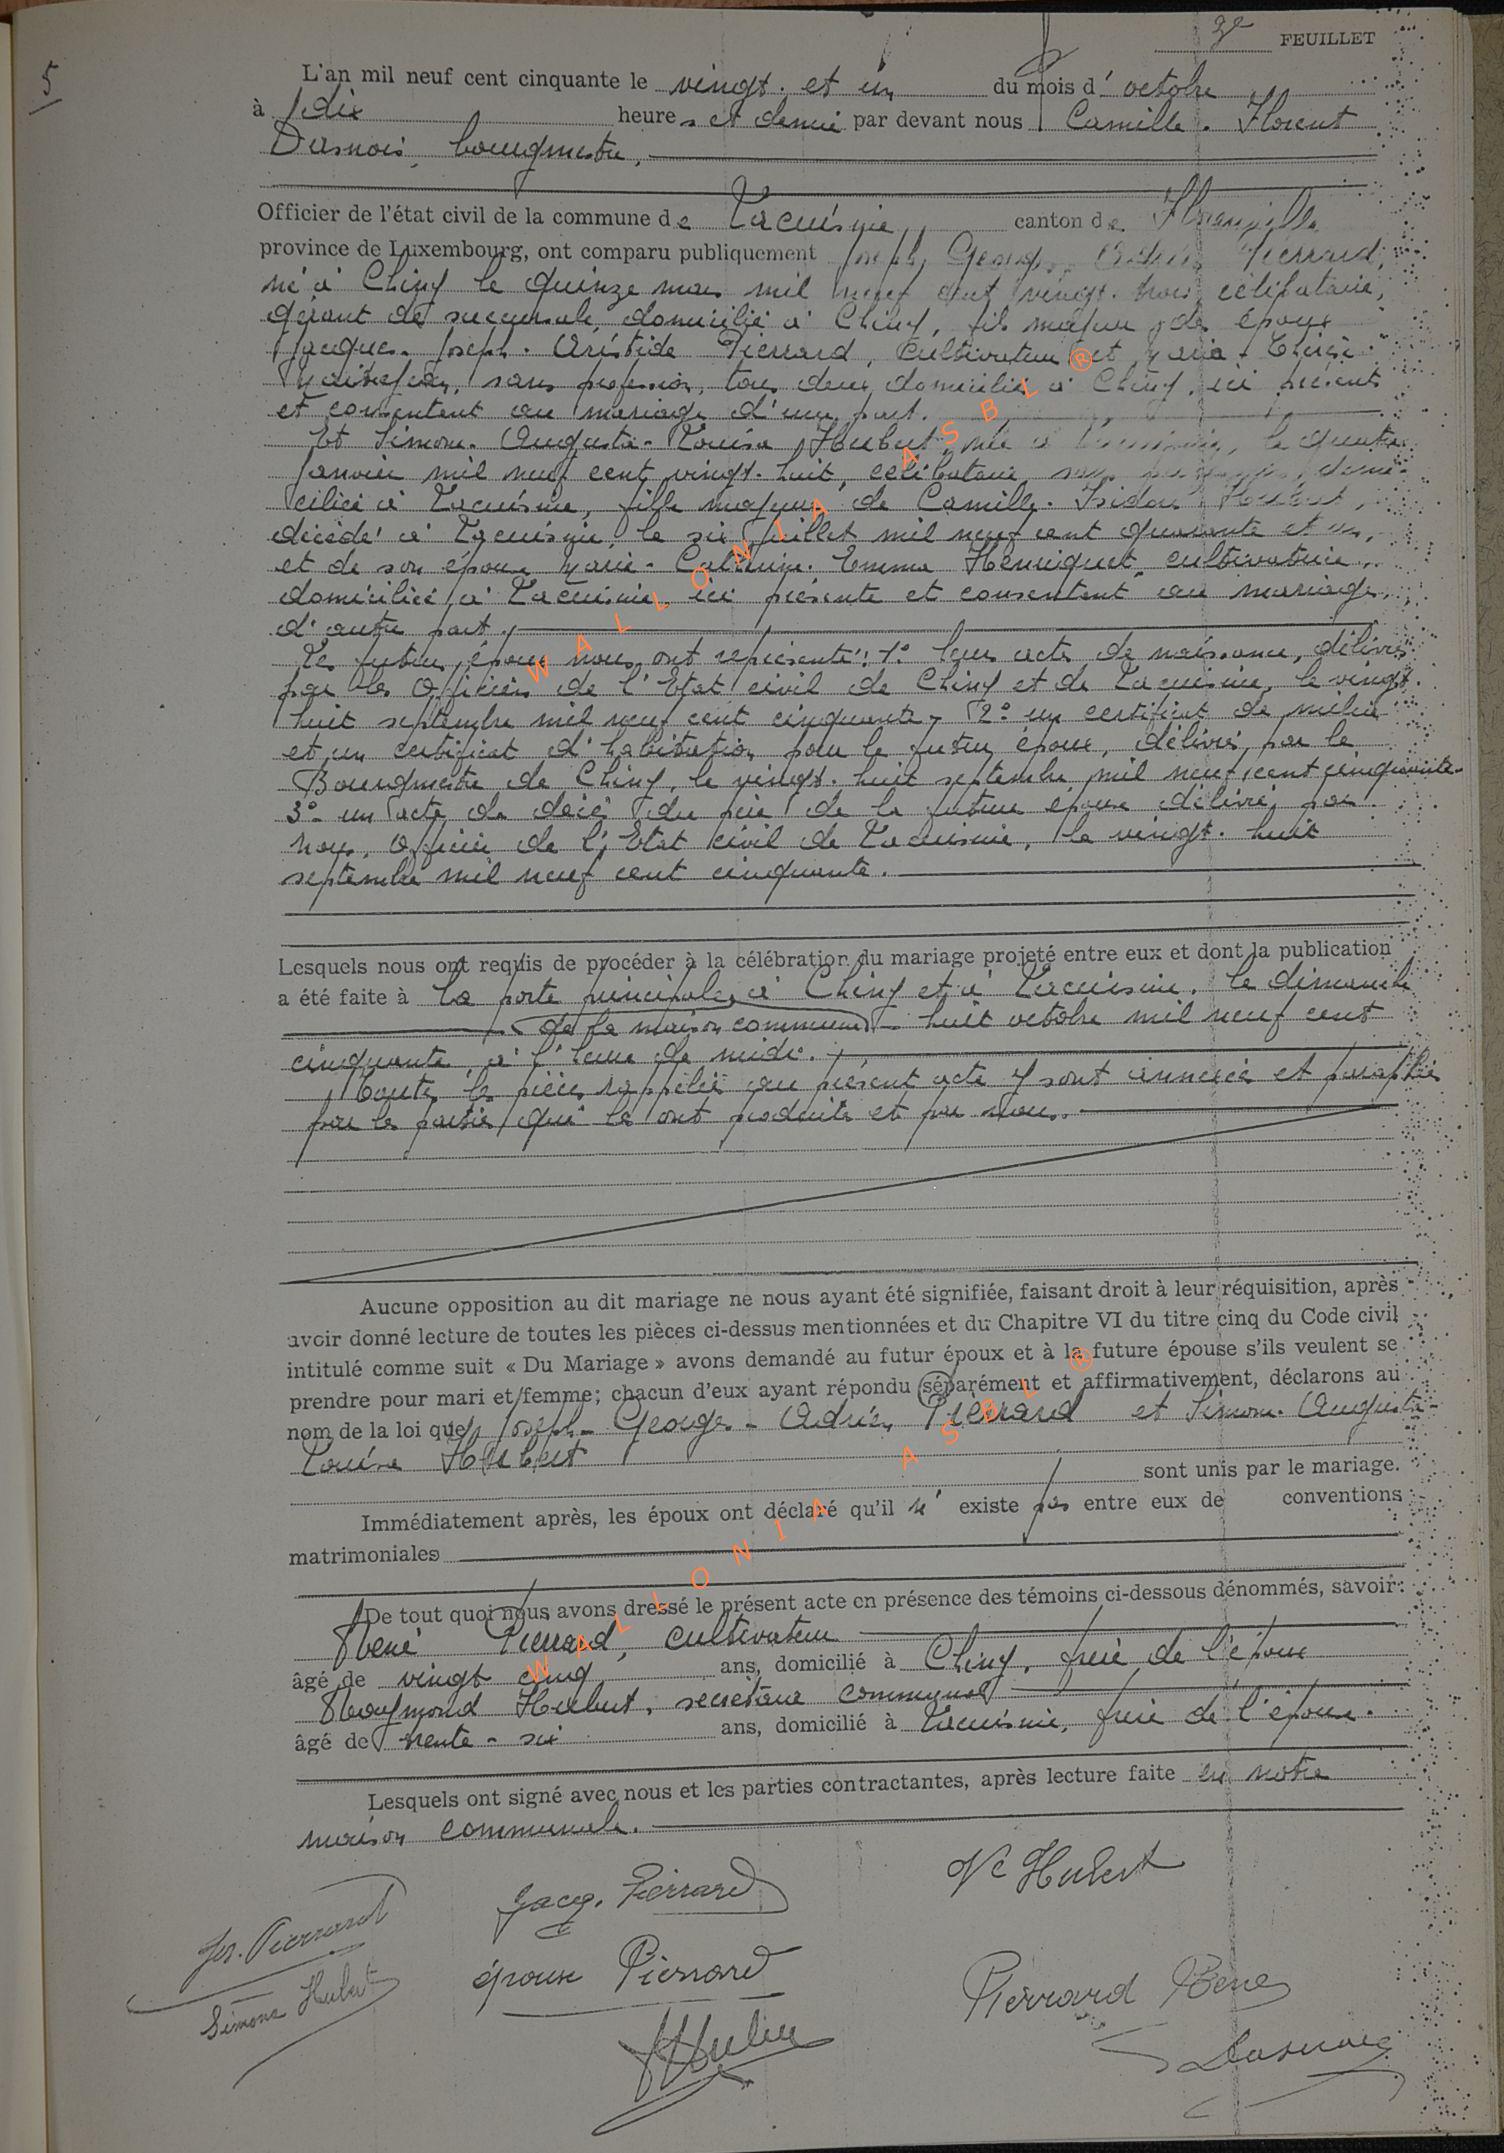 3e FEUILLET
5
L'an mil neuf cent cinquante le vingt. et un du mois d' octobre
à dix heures et demie par devant nous Camille. Florent
Dasnois, bourgmestre,
Officier de l'état civil de la commune de Lacuisine, canton de Florenville
province de Luxembourg, ont comparu publiquement Joseph Georges Adrien Pierrard,
né à Chiny le quinze mars mil neuf cent vingt. trois, célibataire,
gérant de succursale, domicilié à Chiny, fils majeur des époux
Jacques. Joseph. Aristide Pierrard, cultivateur et Maria. Thérèse.
sans profession, tous deux domiciliés à Chiny, ici présents
et consentant au mariage d'une part.
Et Simone. Augusta. Louisa Hubert, née à Lacuisine, le quatre
janvier mil neuf cent vingt. huit, célibataire, sans domi-
ciliée à Lacuisine, fille majeure de Camille. Isidore Hubert,
décédé à Lacuisine, le six juillet mil neuf cent quarante et un,
et de son épouse Marie. Catherine. Emma Henriquet, cultivatrice,
domiciliée à Lacuisine, ici présente et consentant au mariage,
d'autre part.
Les futurs époux nous ont représenté: 1° leurs actes de naissance, délivrés
par les Officiers de l'Etat civil de Chiny et de Lacuisine, le vingt.
huit septembre mil neuf cent cinquante, 2° un certificat de milice
et un certificat d'habitation pour le futur époux, délivrés par le
Bourgmestre de Chiny, le vingt. huit septembre mil neuf cent cinquante.
3° un acte de décès du père de la future épouse délivré par
nous, Officier de l'Etat civil de Lacuisine, le vingt. huit
septembre mil neuf cent cinquante.
Lesquels nous ont requis de procéder à la célébration du mariage projeté entre eux et dont la publication
a été faite à la porte principale à Chiny et à Lacuisine, le dimanche
de la maison communale huit octobre mil neuf cent
cinquante, à l'heure de midi.
Toutes les pièces rappelées au présent acte y sont annexées et paraphées
par les parties qui les ont produites et par nous.
Aucune opposition au dit mariage ne nous ayant été signifiée, faisant droit à leur réquisition, après
avoir donné lecture de toutes les pièces ci-dessus mentionnées et du Chapitre VI du titre cinq du Code civil
intitulé comme suit « Du Mariage » avons demandé au futur époux et à la future épouse s'ils veulent se
prendre pour mari et femme; chacun d'eux ayant répondu séparément et affirmativement, déclarons au
nom de la loi que Joseph. Georges. Adrien Pierrard et Simone. Augusta.
Louisa Hubert
sont unis par le mariage.
Immédiatement après, les époux ont déclaré qu'il n' existe pas entre eux de conventions
matrimoniales
De tout quoi nous avons dressé le présent acte en présence des témoins ci-dessous dénommés, savoir:
René Pierrard, cultivateur
âgé de vingt cinq ans, domicilié à Chiny, frère de l'époux
Raymond Hubert, secrétaire communal
âgé de trente-six ans, domicilié à Lacuisine, frère de l'épouse.
Lesquels ont signé avec nous et les parties contractantes, après lecture faite en notre
maison communale.
Jos. Pierrard
Jacq. Pierrard
Ve Hubert
Simone Hubert
épouse Pierrard
Pierrard René
Hubert
Dasnois
WALLONIA ASBL ®
WALLONIA ASBL ®